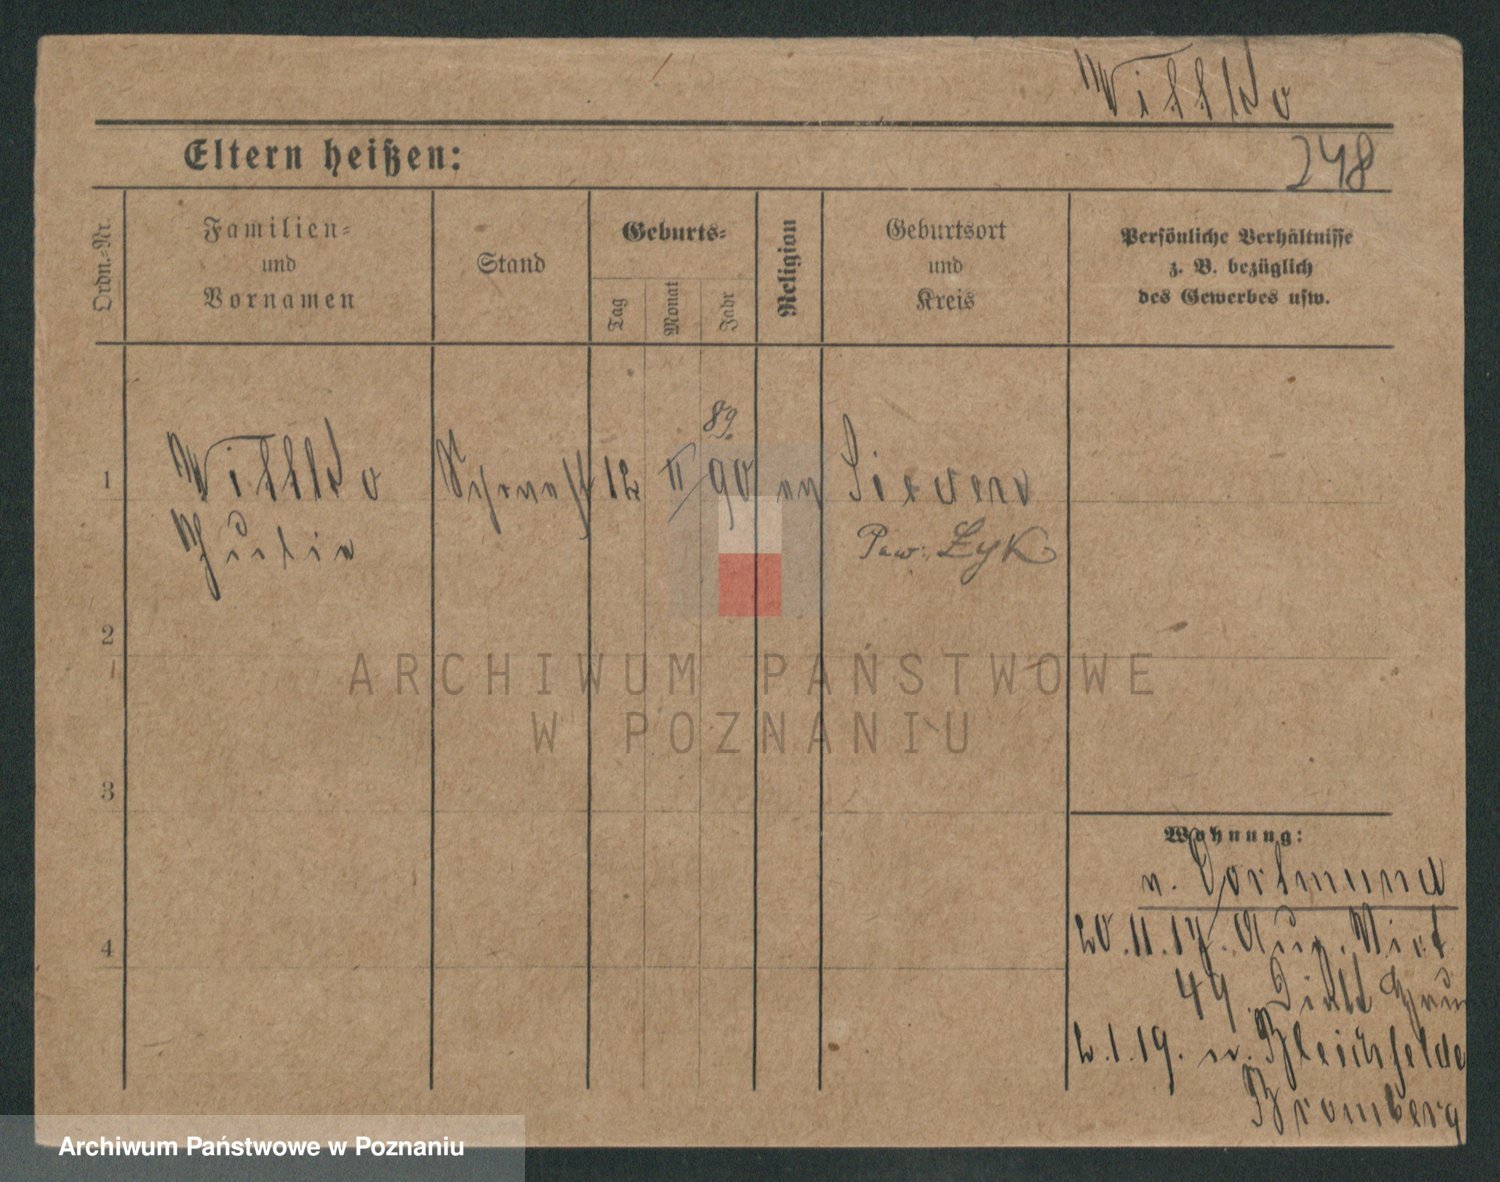 248
Eltern heißen:
Ordn.-Nr.
Familien-
und
Vornamen
Stand
Geburts-
Tag
Monat
Jahr
Religion
Geburtsort
und
Kreis
Persönliche Verhältnisse
z. B. bezüglich
des Gewerbes usw.
89.
1
12 II 90 ev
Pow: Łyk
2
ARCHIWUM PAŃSTWOWE
W POZNANIU
3
Wohnung:
n. Dortmund
4
20.11.17. Aug.
49.
2.1.19. n. Bleichfelde
Bromberg
Archiwum Państwowe w Poznaniu